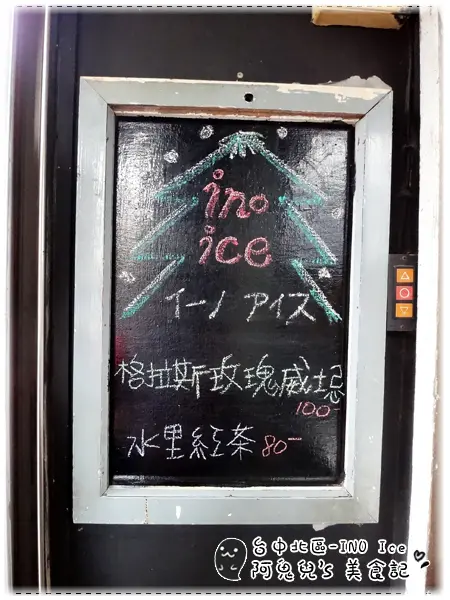 ino
ice
イーノ アイス
格拉斯玫瑰威士忌
100-
水里紅茶 80-
台中北區-INO Ice
阿兔兒's 美食記